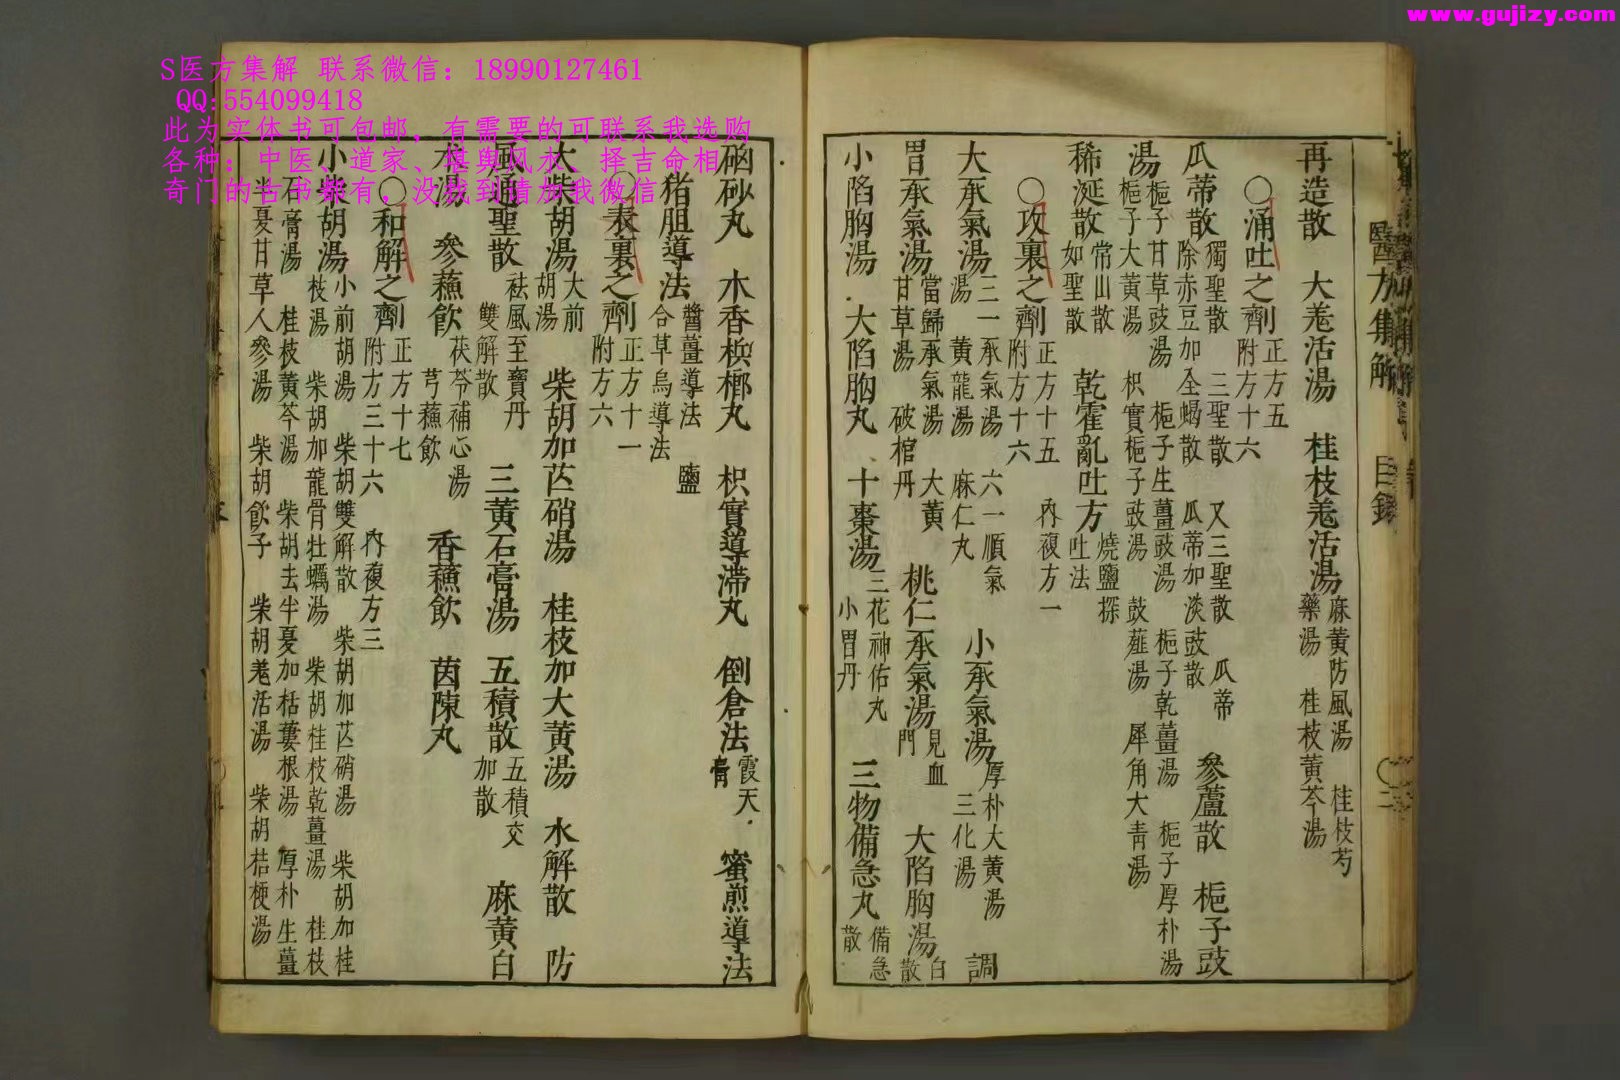 www.gujizy.com
S医方集解 联系微信：18990127461
QQ:554099418
此为实体书可包邮，有需要的可联系我选购
各种：中医、道家、堪舆风水、择吉命相
奇门的古书都有，没找到请加我微信
醫方集解 目錄
再造散 大羗活湯 桂枝羗活湯 麻黃防風湯 桂枝芍藥湯 桂枝黃芩湯
○涌吐之劑 正方五 附方十六
瓜蒂散 獨聖散 三聖散 又三聖散 瓜蒂除赤豆加全蝎散 瓜蒂加淡豉散 參蘆散 梔子豉
湯 梔子甘草豉湯 梔子生薑豉湯 梔子乾薑湯 梔子厚朴湯 梔子大黃湯 枳實梔子豉湯 豉薤湯 犀角大青湯
稀涎散 常山散 如聖散 乾霍亂吐方 燒鹽探吐法
○攻裏之劑 正方十五 附方十六 內複方一
大承氣湯 三一承氣湯 六一順氣湯 黃龍湯 麻仁丸 小承氣湯 厚朴大黃湯 三化湯 調
胃承氣湯 當歸承氣湯 大黃甘草湯 破棺丹 桃仁承氣湯 見血門 大陷胸湯 白散
小陷胸湯 大陷胸丸 十棗湯 三花神佑丸 小胃丹 三物備急丸 備急散
硇砂丸 木香梹榔丸 枳實導滯丸 倒倉法 霞天膏 蜜煎導法
猪胆導法 醬薑導法 鹽合草烏導法
○表裏之劑 正方十一 附方六
大柴胡湯 大前胡湯 柴胡加芒硝湯 桂枝加大黃湯 水解散 防
風通聖散 祛風至寶丹 雙解散 三黃石膏湯 五積散 五積交加散 麻黃白
朮湯 參蘇飲 茯苓補心湯 芎蘇飲 香蘇飲 茵陳丸
○和解之劑 正方十七 附方三十六 內複方三
小柴胡湯 小前胡湯 柴胡雙解散 柴胡加芒硝湯 柴胡加桂枝湯 柴胡加龍骨牡蠣湯 柴胡桂枝乾薑湯 桂枝
石膏湯 桂枝黃芩湯 柴胡去半夏加栝蔞根湯 厚朴生薑半夏甘草人參湯 柴胡飲子 柴胡羗活湯 柴胡桔梗湯